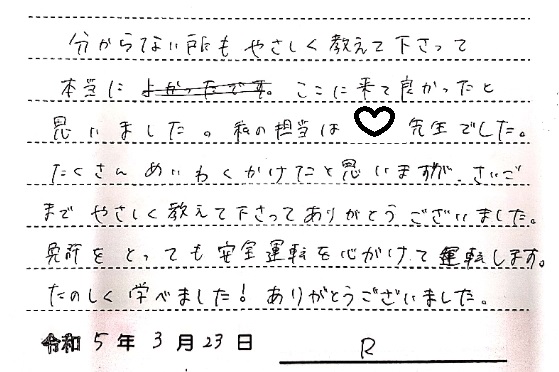 分からない所もやさしく教えて下さって
本当によかったです。ここに来て良かったと
思いました。私の担当は♡先生でした。
たくさんめいわくかけたと思いますが、さいご
までやさしく教えて下さってありがとうございました。
免許をとっても安全運転を心がけて運転します。
たのしく学べました!ありがとうございました。
令和5年3月23日 R